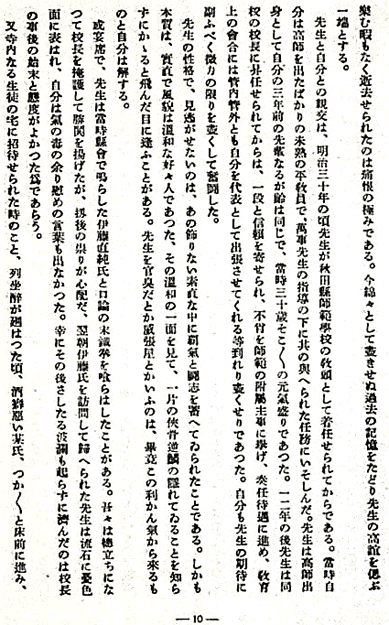 樂む暇もなく逝去せられたのは痛恨の極みである。今綿々として盡きせぬ過去の記憶をたどり先生の高誼を偲ぶ
一端とする。
先生と自分との親交は、明治三十年の頃先生が秋田縣師範學校の敎頭として着任せられてからである。當時自
分は高師を出たばかりの未熟の平敎員で、萬事先生の指導の下に其の與へられた任務にいそしんだ。先生は高師出
身として自分の三年前の先輩なるが齡は同じで、當時三十歳そこ〳〵の元氣盛りであつた。一二年の後先生は同
校の校長に昇任せられてからは、一段と信賴を寄せられ、不肖を師範の附屬主事に擧げ、奏任待遇に進め、敎育
上の會合には管內管外とも自分を代表として出張させてくれる等到れり盡くせりであつた。自分も先生の期待に
副ふべく微力の限りを盡くして奮鬪した。
先生の性格で、見逃がせないのは、あの飾りない素直な中に覇氣と鬪志を蓄へてゐられたことである。しかも
本質は、實直で風貌は溫和な好々人であつた、その溫和の一面を見て、一片の俠骨逆鱗の隱れてゐることを知ら
ずにかゝると飛んだ目に逢ふことがある。先生を官臭だとか威張屋とかいふのは、畢竟この利かん氣から來るも
のと自分は解する。
或宴席で、先生は當時縣會で鳴らした伊藤直純氏と口論の末鐵拳を喰らはしたことがある。吾々は總立ちにな
つて校長を掩護して勝鬨を揚げたが、扨後の祟りが心配だ、翌朝伊藤氏を訪問して歸へられた先生は流石に憂色
面に表はれ、自分は氣の毒の余り慰めの言葉も出なかつた。幸にその後さしたる波瀾も起らずに濟んだのは校長
の事後の始末と態度がよかつた爲であらう。
又寺內なる生徒の宅に招待せられた時のこと、列坐醉が廻はつた頃、酒癖惡い某氏、つか〳〵と床前に進み、
— 10 —